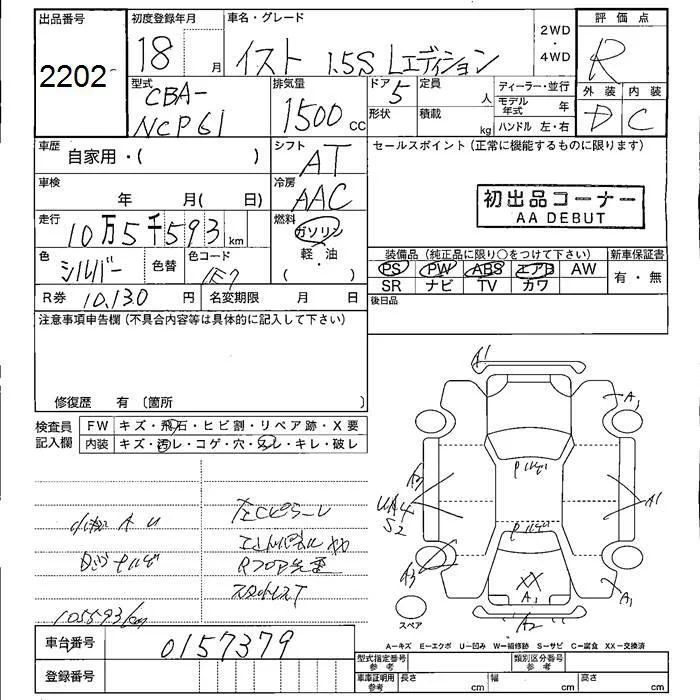 出品番号
2202
初度登録年月
18 月
車名・グレード
イスト 1.5S Lエディション
2WD
・
4WD
評価点
R
外装 内装
D C
型式
CBA-
NCP61
排気量
1500 cc
ドア 5
形状
定員
人
積載
kg
ディーラー・並行
モデル年式 年
ハンドル 左・右
車歴
自家用・( )
シフト
AT
車検
年 月( 日)
冷房
AAC
走行
10万5千593 km
燃料
ガソリン
軽・油
( )
色
シルバー
色替
色コード
1E7
R券 10,130 円
名変期限 月 日
セールスポイント(正常に機能するものに限ります)
初出品コーナー
AA DEBUT
装備品(純正品に限り○をつけて下さい)
PS PW ABS エアB AW
SR ナビ TV カワ
新車保証書
有・無
後日品
注意事項申告欄(不具合内容等は具体的に記入して下さい)
修復歴 有〔箇所
検査員
記入欄
FW キズ・飛石・ヒビ割・リペア跡・X要
内装 キズ・汚レ・コゲ・穴・スレ・キレ・破レ
小キズ A U
105593km
A1
A1
A1
A1
A3
UA4
S2
A3
XX
A1
A2
スペア
A-キズ E-エクボ U-凹み W-補修跡 S-サビ C-腐食 XX-交換済
車台番号
0157379
登録番号
型式指定番号
参考
類別区分番号
参考
車庫証明用
参考
長さ cm
幅 cm
高さ cm